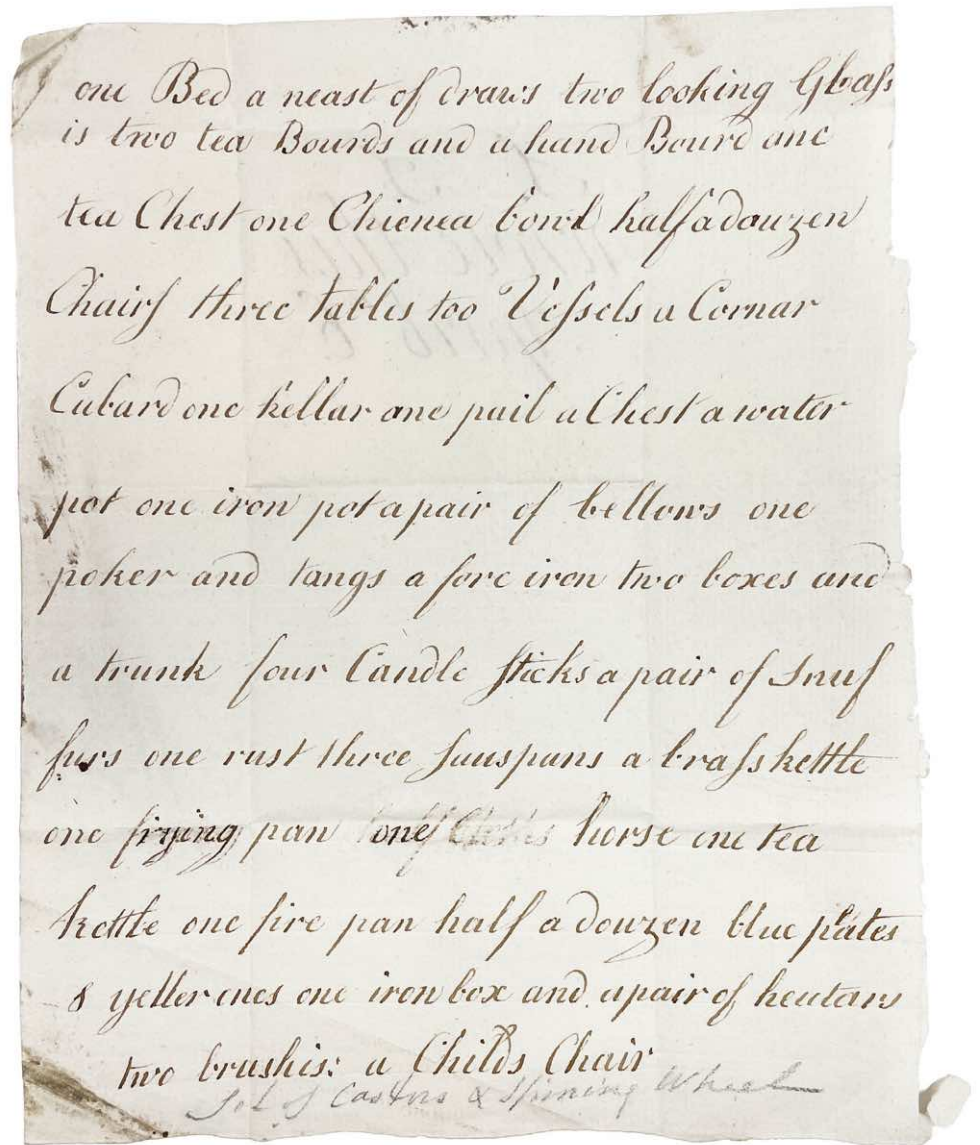 one Bed a neast of draws two looking Glass
is two tea Bourds and a hand Bourd one
tea Chest one Chienea bowl half a douzen
Chairs three tables too Vessels a Cornar
Cubard one kellar one pail a Chest a water
pot one iron pot a pair of bellows one
poker and tangs a fore iron two boxes and
a trunk four Candle sticks a pair of Snuf
furs one rust three Sauspans a brass kettle
one frying pan one horse one tea
kettle one fire pan half a douzen blue plates
8 yeller ones one iron box and a pair of heatars
two brushis: a Childs Chair
Set of Castors & Spinning Wheel